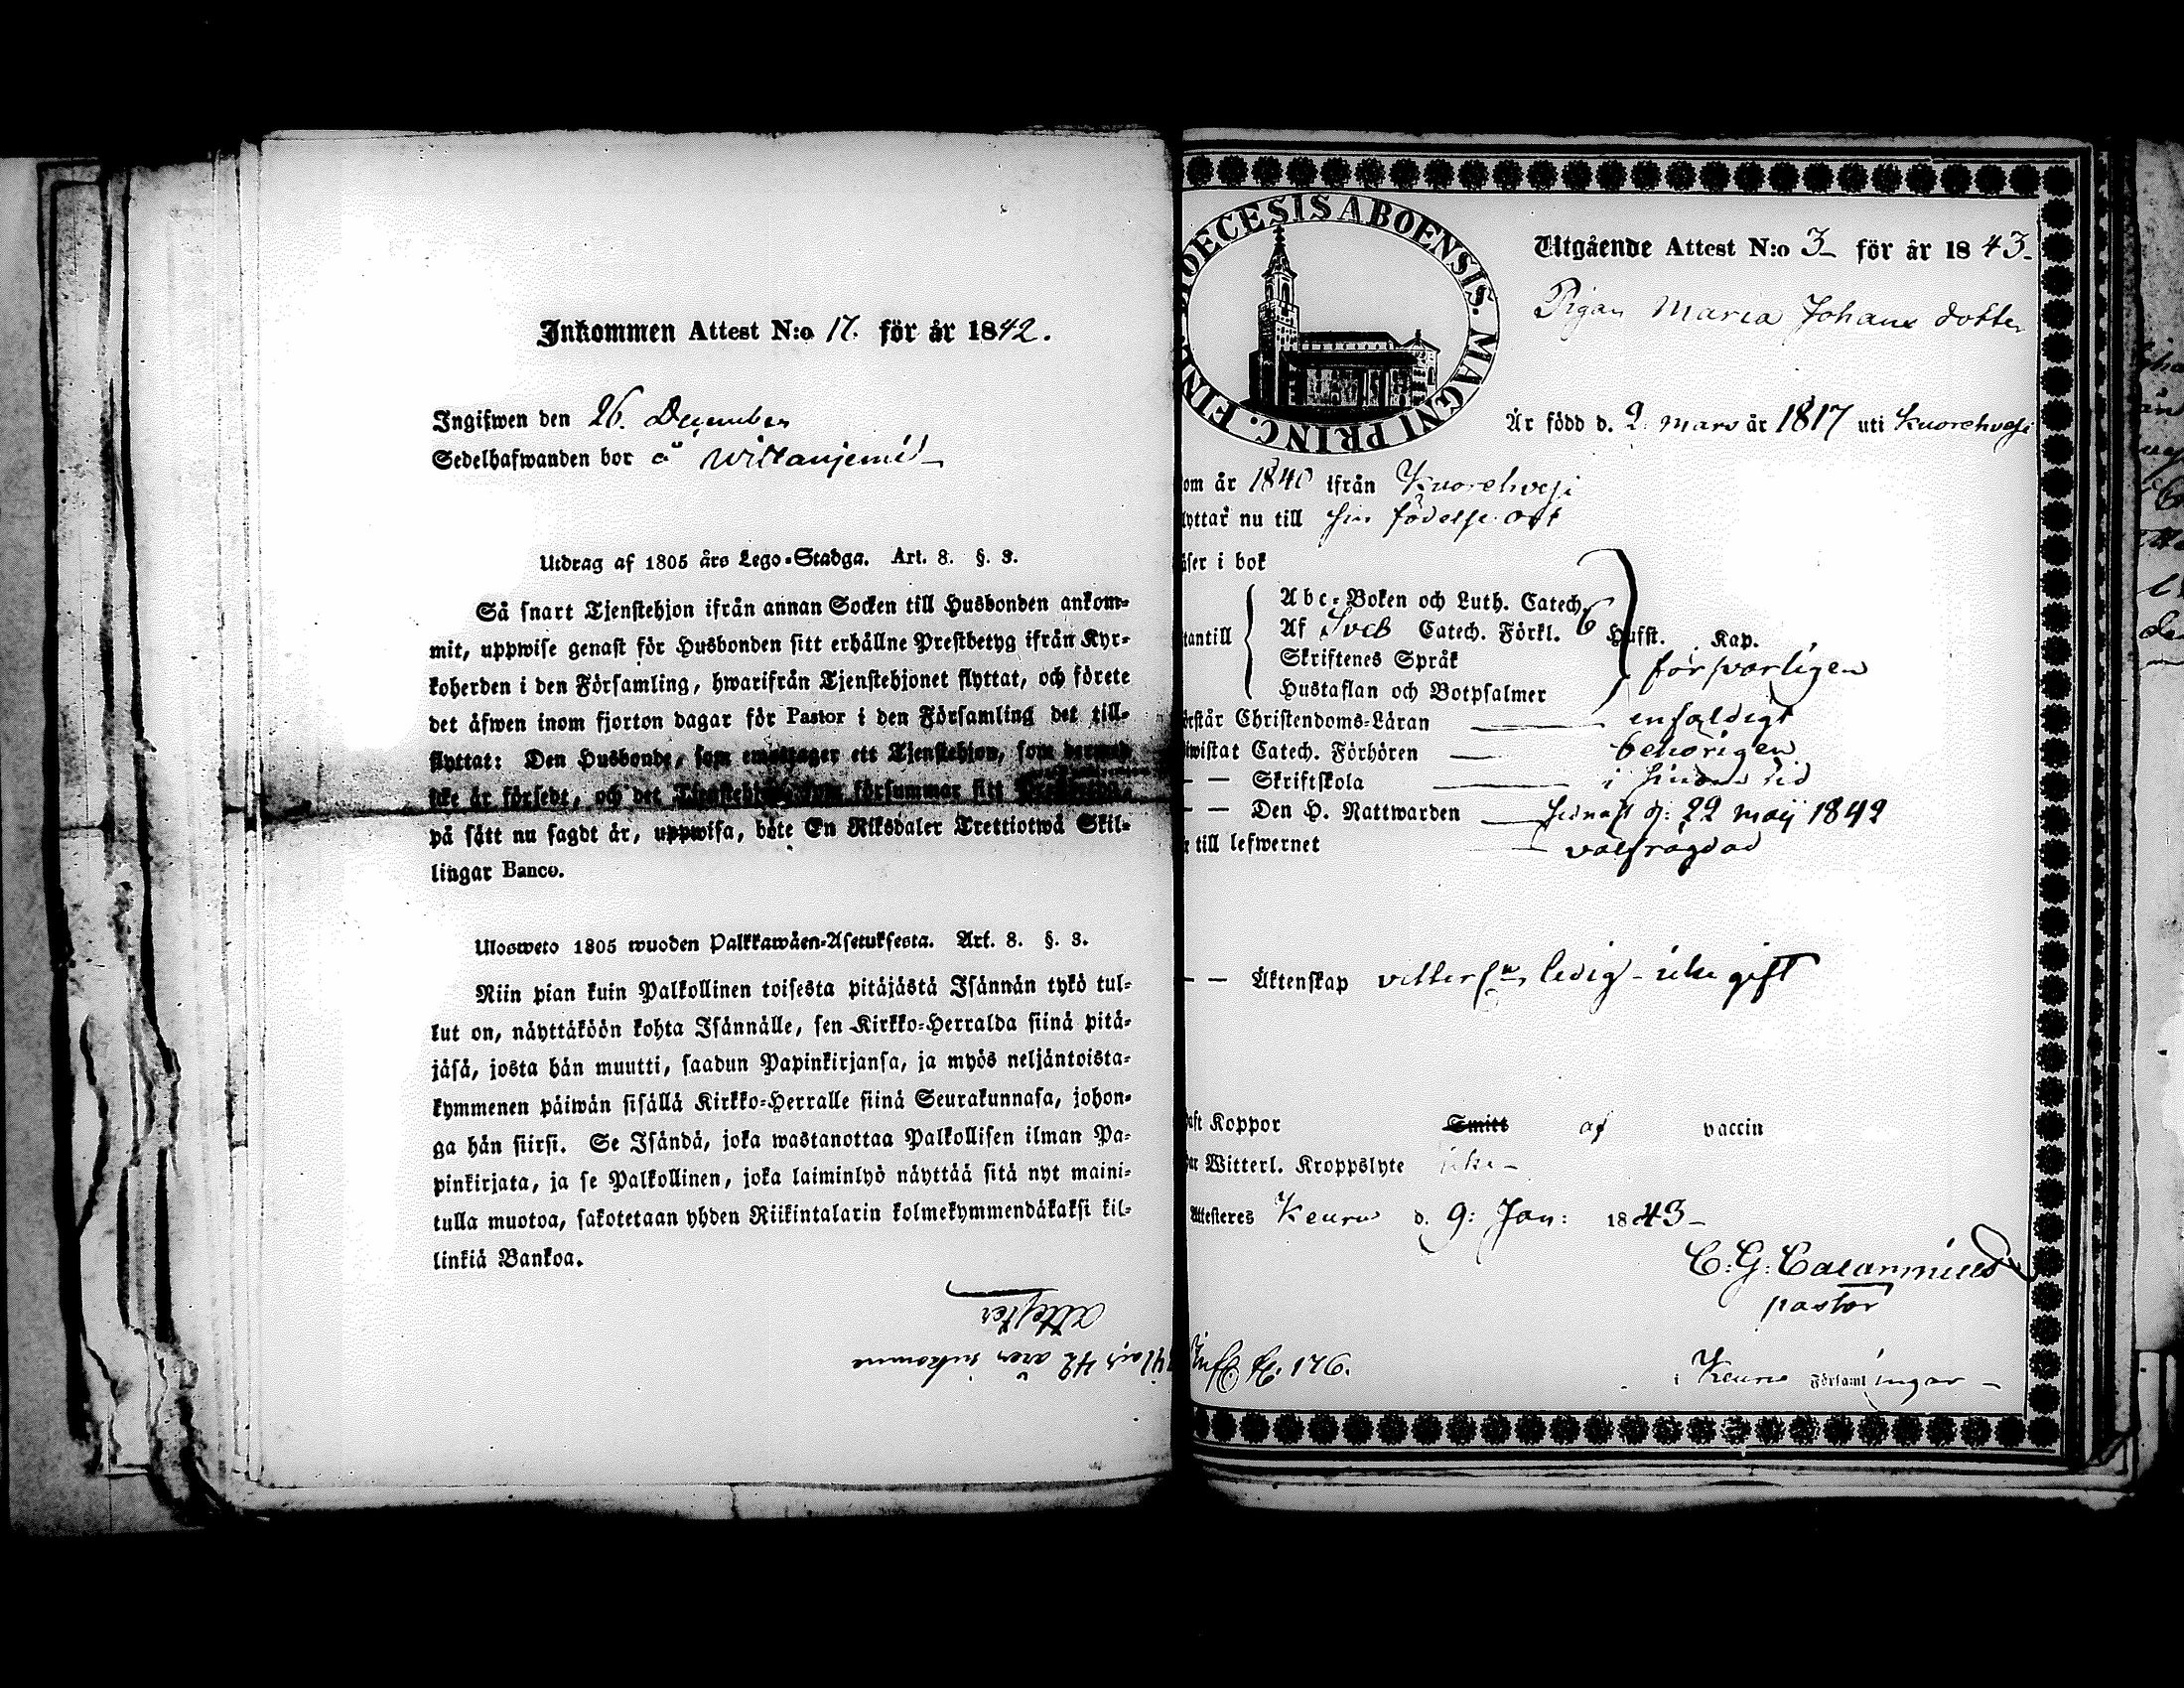 Inkommen Attest N:o 17. för år 1842.
Ingifwen den 26. December
Sedelhafwanden bor å
Utdrag af 1805 års Lego-Stadga. Art. 8. §. 3.
Så snart Tjenstehjon ifrån annan Socken till Husbonden ankom-
mit, uppwise genast för Husbonden sitt erhållne Prestbetyg ifrån Kyr-
koherden i den Församling, hwarifrån Tjenstehjonet flyttat, och förete
det äfwen inom fjorton dagar för Pastor i den Församling det till-
flyttat: Den Husbonde, som emottager ett Tjenstehjon, som dermed
icke är försedt, och det Tjenstehjon, som försummar sitt
på sätt nu sagdt är, uppwisa, böte En Riksdaler Trettiotwå Skil-
lingar Banco.
Ulosweto 1805 wuoden Palkkawäen-Asetuksesta. Art. 8. §. 3.
Niin pian kuin Palkollinen toisesta pitäjästä Isännän tykö tul-
lut on, näyttäköön kohta Isännälle, sen Kirkko-Herralda siinä pitä-
jäsä, josta hän muutti, saadun Papinkirjansa, ja myös neljäntoista-
kymmenen päiwän sisällä Kirkko-Herralle siinä Seurakunnasa, johon-
ga hän siirsi. Se Isändä, joka wastanottaa Palkollisen ilman Pa-
pinkirjata, ja se Palkollinen, joka laiminlyö näyttää sitä nyt maini-
tulla muotoa, sakotetaan yhden Riikintalarin kolmekymmendäkaksi kil-
linkiä Bankoa.
Attester
42 åren inkomne
DIOECESIS ABOENSIS. MAGNI PRINC. FINL.
Utgående Attest N:o 3 för år 1843
Pigan Maria Johans dotter
Är född d. 2 mars år 1817 uti Kuorehvesi
om år 1840 ifrån Kuorehvesi
lyttar nu till sin födelse ort
äser i bok
tantill
Abc-Boken och Luth. Catech.
Af Sveb Catech. Förkl. 6 Hufst. Kap.
Skriftenes Språk
Hustaflan och Botpsalmer
försvarligen
örstår Christendoms-Läran enfaldigt
iwistat Catech. Förhören behörigen
— — Skriftskola i sinom tid
— — Den H. Nattwarden sednast d: 22 maij 1842
till lefwernet välfrägdad
— — Äktenskap ledig - icke gift
aft Koppor Smitt af vaccin
ar Witterl. Kroppslyte icke
Attesteres Keuru d. 9: Jan: 1843
C: G: Calamnius
pastor
176.
i Keuru Församlingar